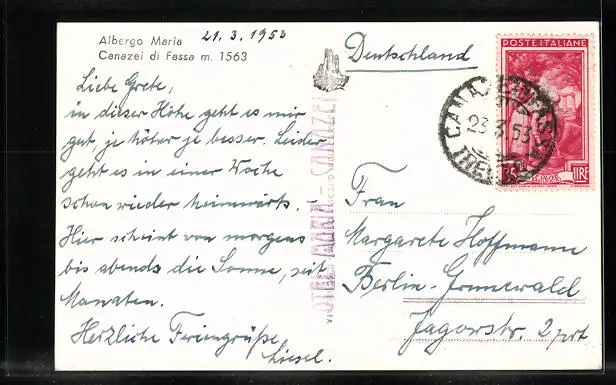 Albergo Maria
Canazei di Fassa m. 1563
21.3.1953
Liebe Grete,
in dieser Höhe geht es mir
gut, je höher je besser. Leider
geht es in einer Woche
schon wieder heimwärts. -
Hier scheint von morgens
bis abends die Sonne, seit
Monaten.
Herzliche Feriengrüße
Liesel.
HOTEL MARIA - CANAZEI
Deutschland
POSTE ITALIANE
35 LIRE
23.3.53
Frau
Margarete Hoffmann
Berlin-Grunewald
Jagowstr. 2 prt